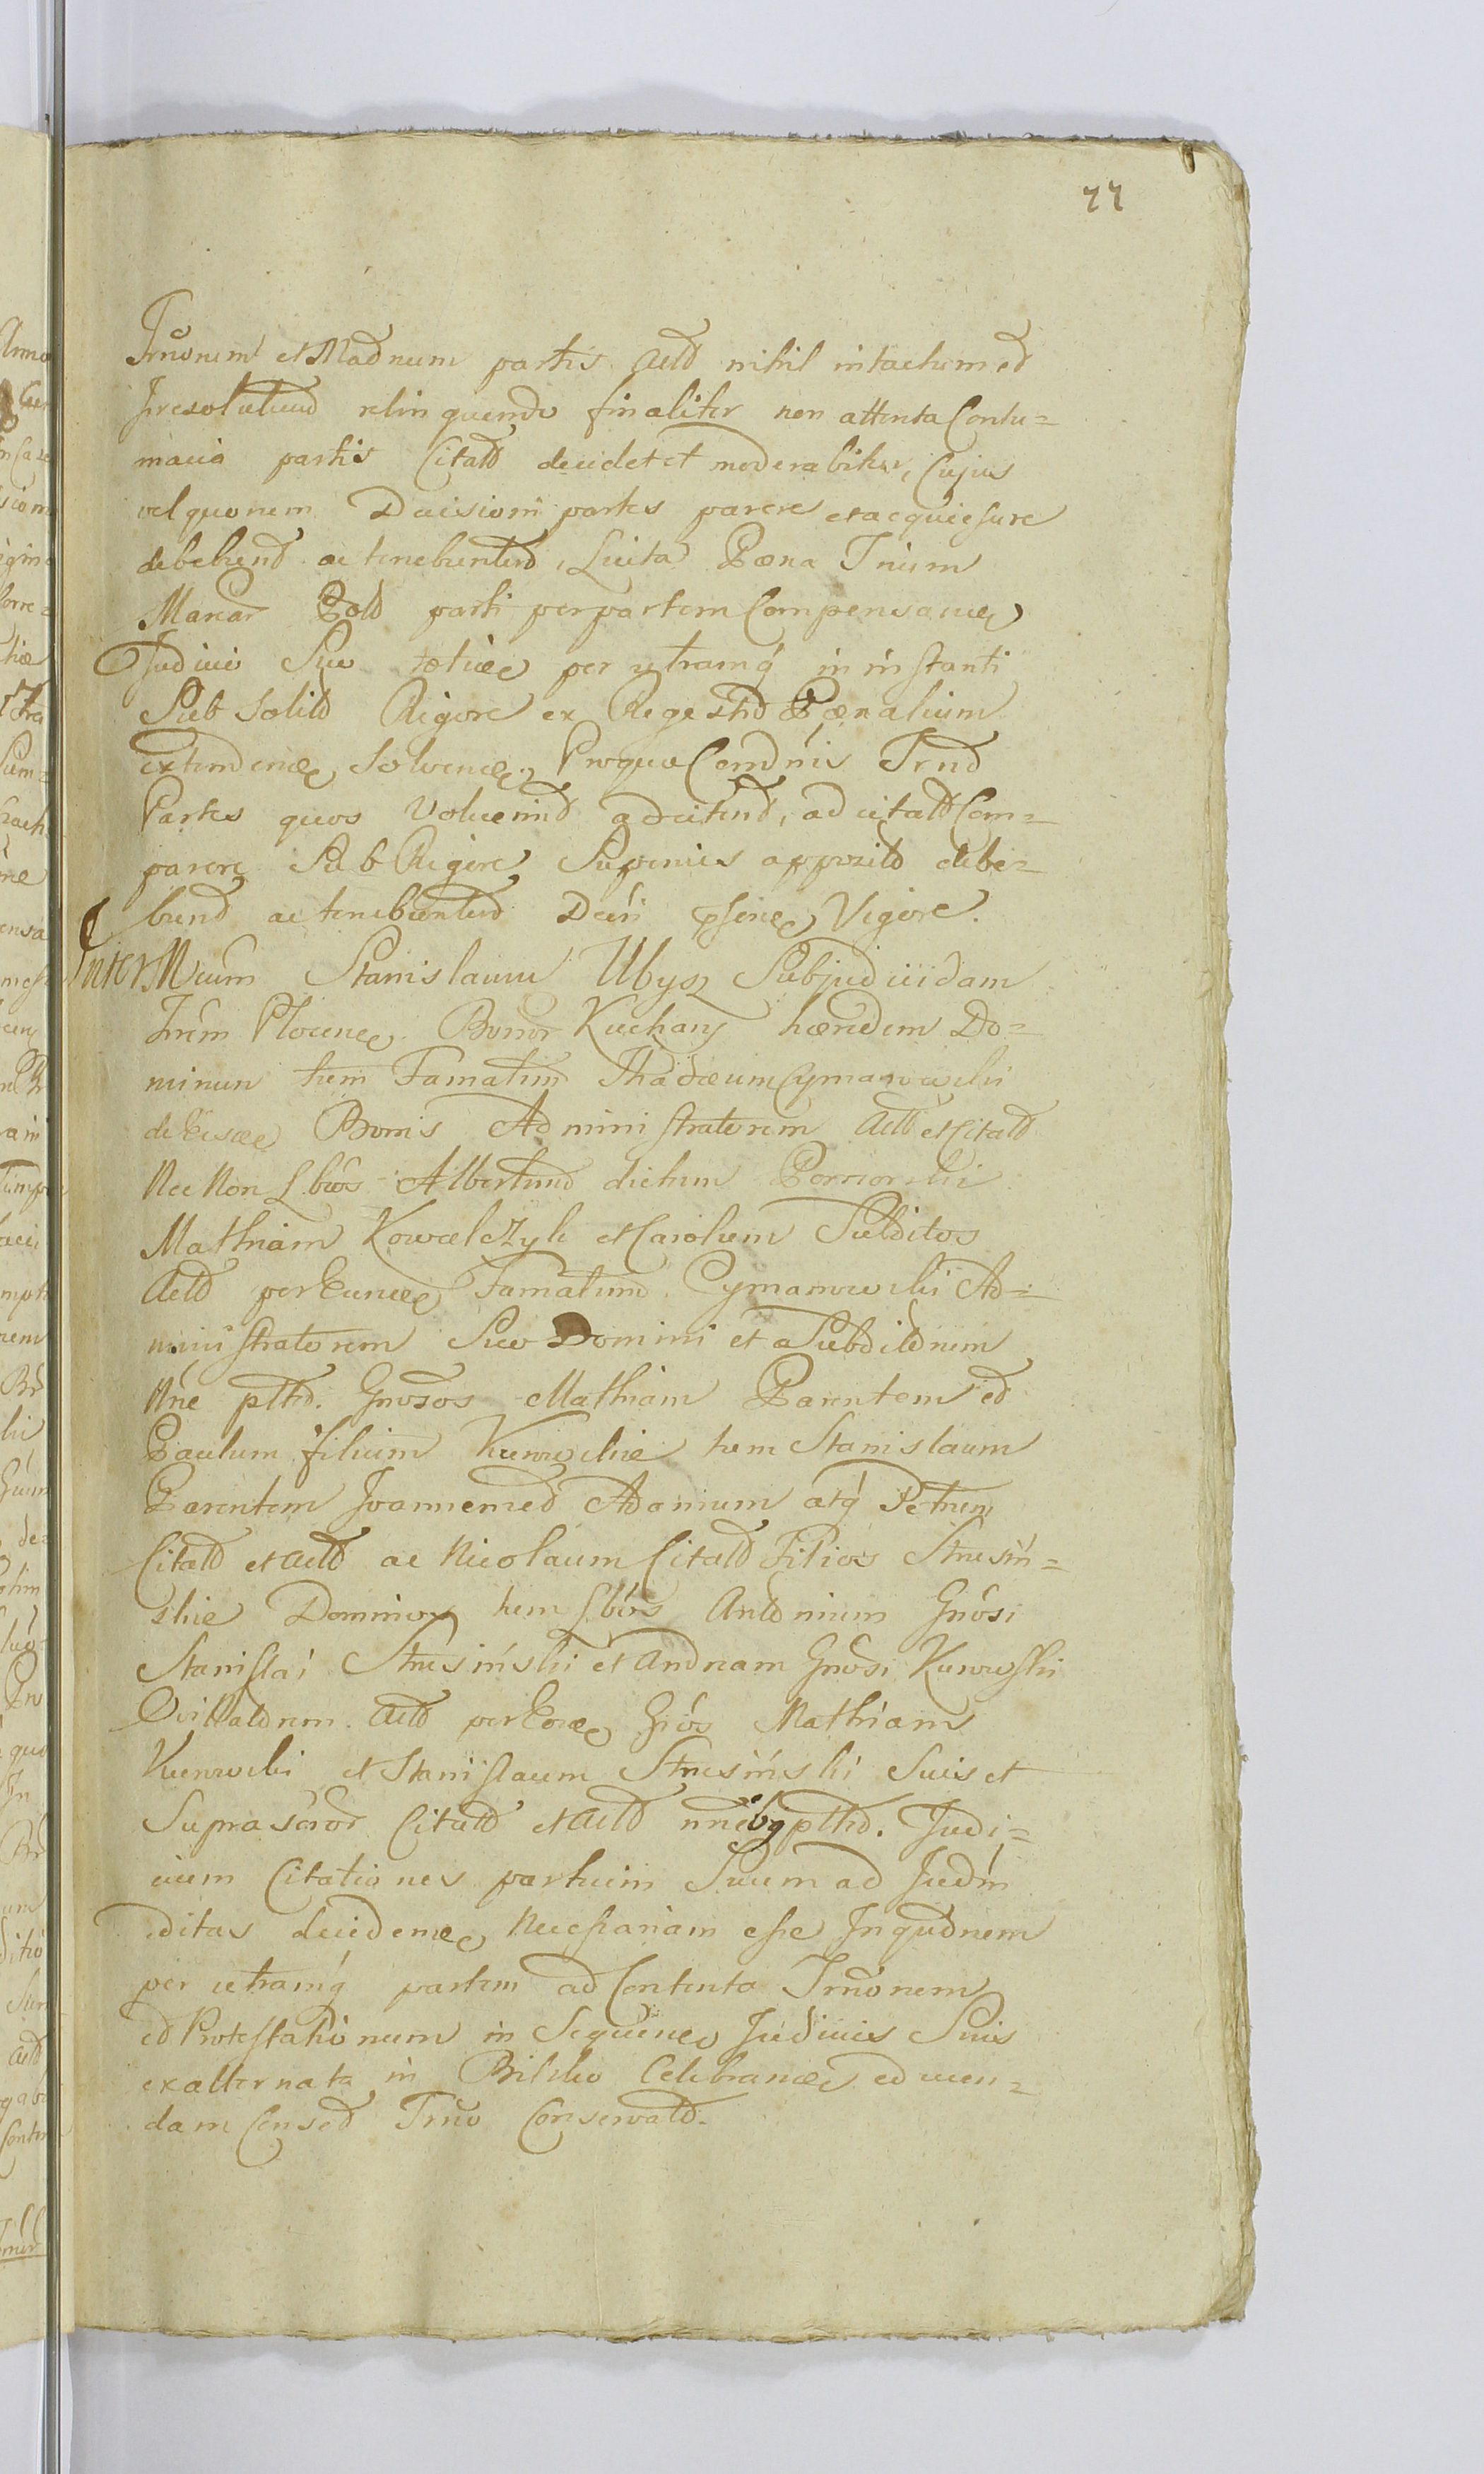 77
Trmonem et Madnum partis Actd nihil intactum ed
Jrresolutum relinquendo finaliter non attenta Contu=
macia partis Citatd decidet et moderabitur, Cujus
vel quonem Decisioni partes parere et acquiescere
debebund ac tenebunturd, Luita Pæna Trium
Marcar Pold parti per partem Compensanae
Judicio Suo totiee per utramq́ in instanti
Sub Solitd Rigore ex Regestrd Pænalium
extendenae Solvenae, Proqua Condnis Trnd
Partes quos Voluerind adcitend, adcitatd Com=
parere Sub Rigore Superius apprzitd debe=
bund ac tenebunturd Decri pseine Vigore.
Inter Mcum Stanislaum Ubysz Subjudicidam
Trem Plocene Bonor Kuchary hæredem Do=
minum tum Famatum Thadæum Cymanowski
de Eisee Bonis Administratorem Actd et Citatd
Nec Non Lbos Albertum dictum Pomorski
Mathiam Kowalczyk et Carolum Subditos
Actd per Eunee Famatum Cymanowski Ad=
ministratorem Suo Domini et a Subditdnum
Nne pltd. Gnosos Mathiam Parentem ed
Paulum filium Kunowskie tum Stanislaum
Parentem Joannemed Adamum atq́ Petrum
Citatd et Actd ac Nicolaum Citatd Filios Stresiń=
skie Dominos tum Lbos Antonium Gnosi
Stanislai Stresiński et Andream Gnosi Kunowski
Actd per Eosee Gnos Mathiam
Kunowski et Stanislaum Stresiński Suis et
Suprascror Citatd et Actd nnibq pltd. Judi=
cium Citationes partium Suum ad Judm
editas decidenae Necessariam esse Inqudnem
per utramq́ partem ad Contenta Trmonem
ed Protestationum in Sequene Judiciis Suis
exalternata in Bielsko Celebranae educen=
dam Censed Trmo Conservatd.